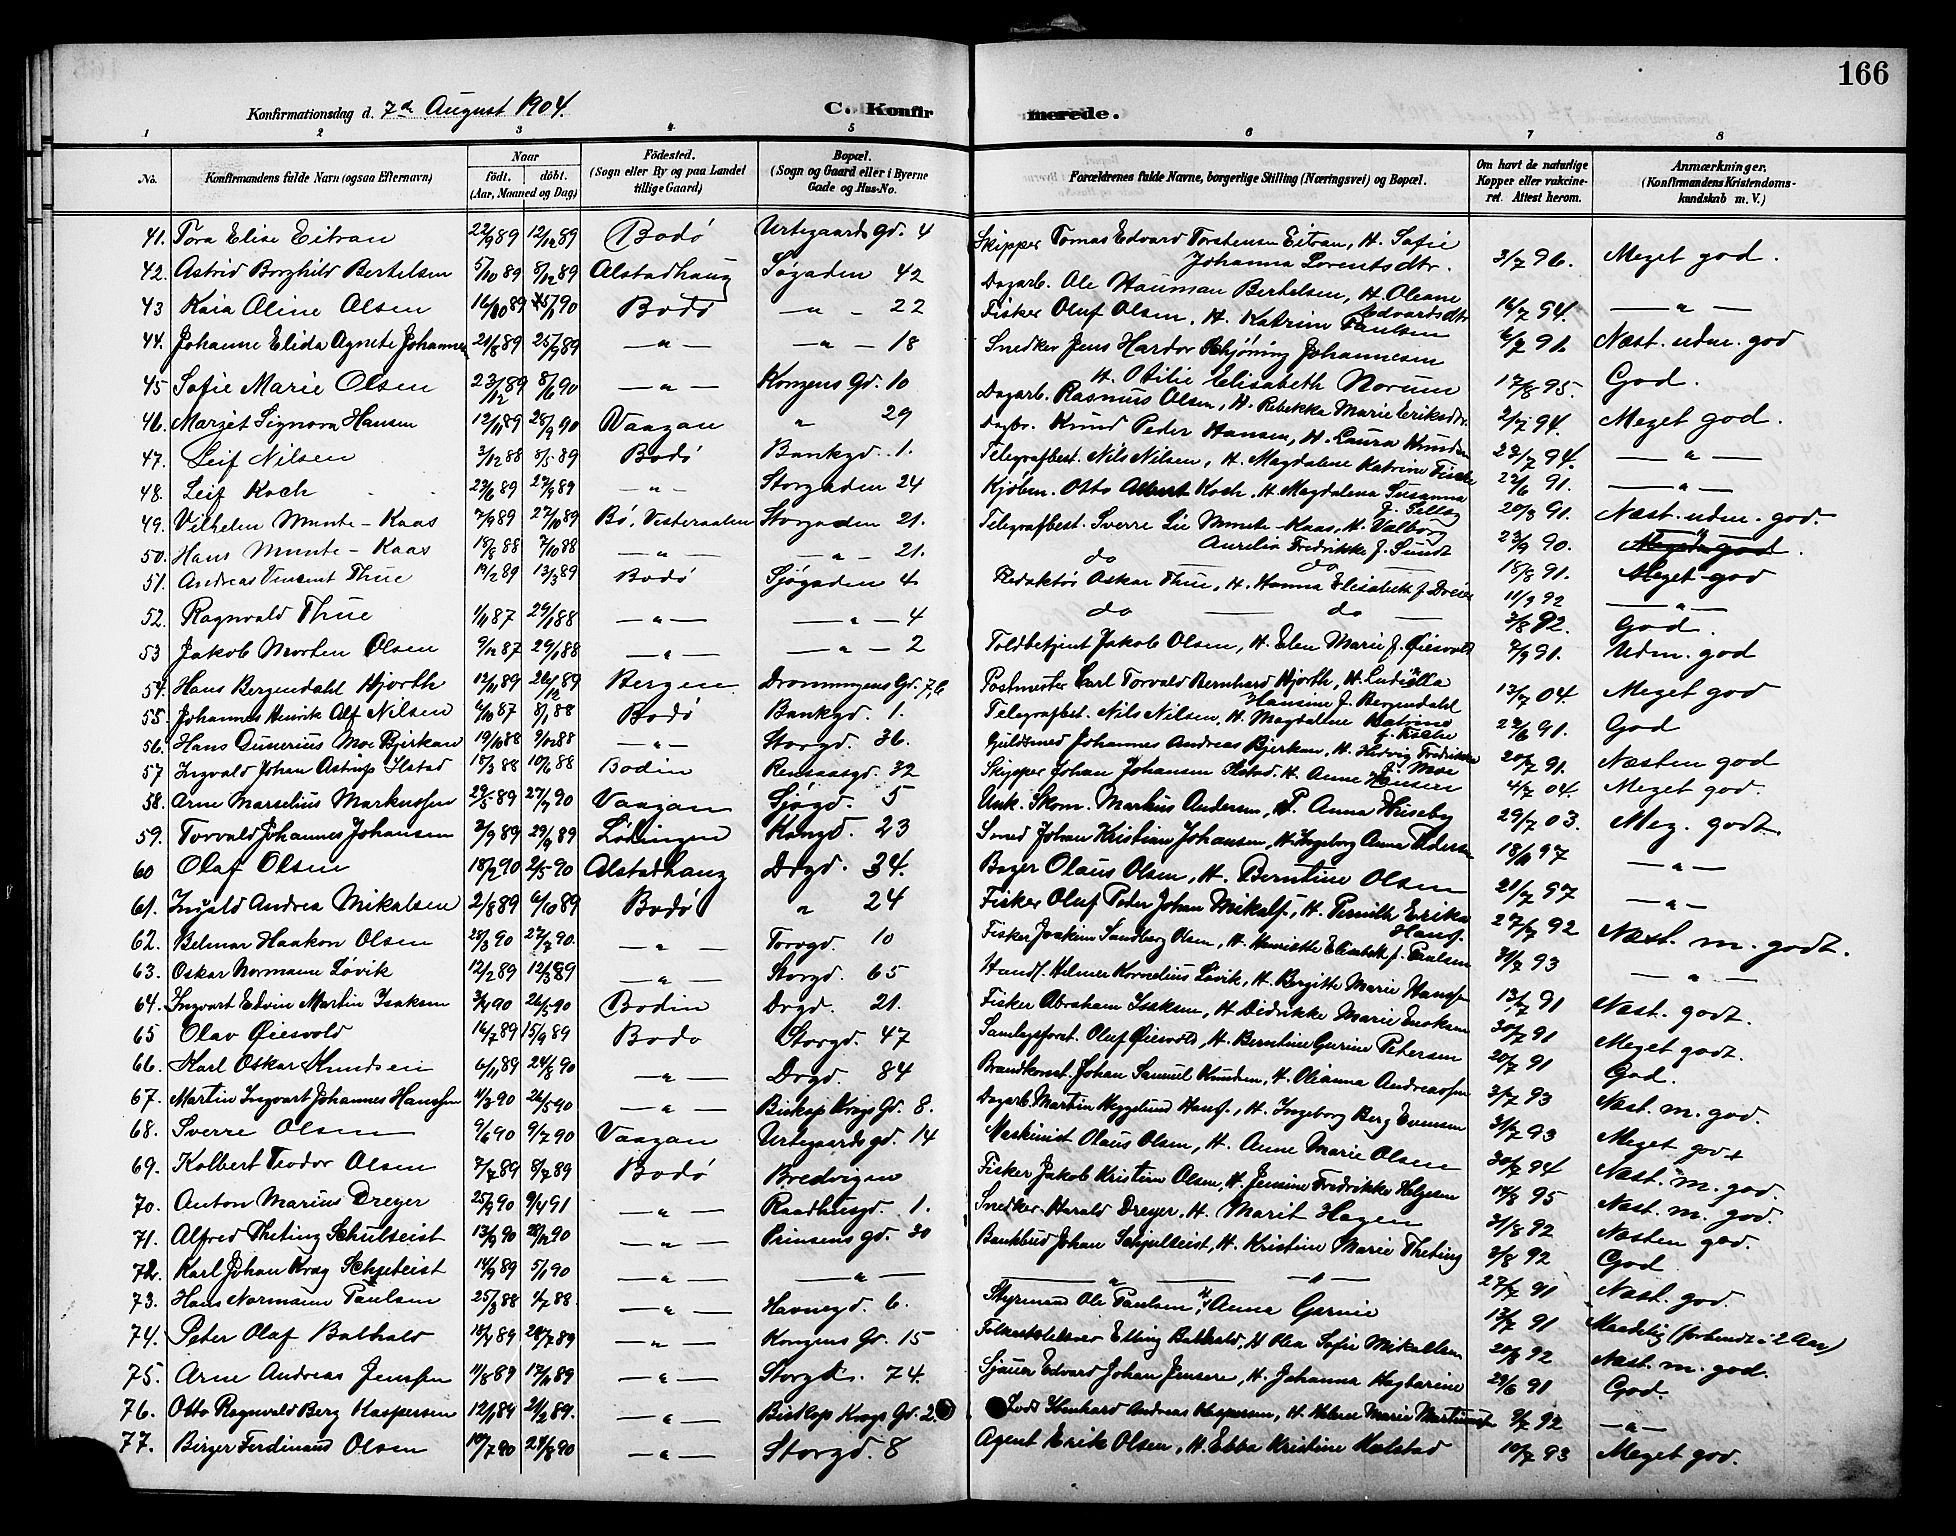 166
Konfirmationsdag d. 7de August 1904. C. Konfirmerede.
1 2 3 4 5 6 7 8
No. Konfirmandens fulde Navn (ogsaa Efternavn) Naar födt. döbt. (Aar, Maaned og Dag) Födested. (Sogn eller By og paa Landet tillige Gaard) Bopæl. (Sogn og Gaard eller i Byerne Gade og Hus-No. Forældrenes fulde Navne, borgerlige Stilling (Næringsvei) og Bopæl. Om havt de naturlige Kopper eller vakcineret. Attest herom. Anmærkninger. (Konfirmandens Kristendomskundskab m. V.)
41. Tora Elise Eitran 22/9 89 12/12 89 Bodø Urtegaards Gd. 4 Skipper Tomas Edvard Torstensen Eitran, H. Sofie Johanna Lorentsdtr. 3/7 96. Meget god.
42. Astrid Borghild Bertelsen 5/10 89 8/12 89 Alstadhaug Søgaden 42 Dagarb. Ole Hauman Bertelsen, H. Oleane Edvardsdtr 14/7 94. — " —
43 Kaia Aline Olsen 16/10 89 90 Bodø — " — 22 Fisker Oluf Olsen, H. Katrine Paulsen 91. Næst. udm. god
44. Johanne Elida Agnete Johannes 21/8 89 25/9 89 — " — — " — 18 Snedker Jens Hardor Johannesen H. Otilie Elisabeth Norum 17/8 95. God.
45 Sofie Marie Olsen 23/12 89 8/6 90 — " — Kongens Gd. 10 Dagarb. Rasmus Olsen, H. Rebekke Marie Eriksdtr. 2/7 94. Meget god.
46. Marget Signora Hansen 12/11 89 28/9 90 Vaagan " 29 Dagbr. Knud Peder Hansen, H. Laura Knudsen 23/7 94. — " —
47. Leif Nilsen 3/12 88 8/5 89 Bodø Bankgd. 1. Telegrafbest. Nils Nilsen, H. Magdalene Katrine Fische 22/6 91. — " —
48. Leif Koch 23/6 89 27/9 89 — " — Storgaden 24 Kjøbm. Otto Albert Koch. H. Magdalena Susanna 20/8 91. Næst. udm. god.
49. Vilhelm Munte-Kaas 7/9 89 27/10 89 Bø, Vesteraalen Storgaden 21. Telegrafbest. Sverre Lie Munte-Kaas, H. Valborg Aurelia Fredrikke f. Sundt 23/9 90.
50. Hans Munte-Kaas 18/8 88 7/10 88 — " — — " — 21. do — do — 18/8 91. Meget god
51. Andreas Vincent Thue 14/2 89 13/3 89 Bodø Sjøgaden 4. Redaktør Oskar Thue, H. Hanna Elisabeth f. Dreier 11/9 92 — " —
52. Ragnvald Thue 1/11 87 29/1 88 — " — — " — 4 do — do — 3/8 92. God.
53 Jakob Morten Olsen 9/12 87 29/1 88 — " — — " — 2 Toldbetjent Jakob Olsen, H. Elen Marie f. Øiesvold 9/9 91. Udm. god
54. Hans Bergendahl Hjorth 12/11 89 26/12 89 Bergen Dronningens Gd. Postmester Carl Torvald Bernhard Hjorth, H. Hansine f. Bergendahl 13/7 04. Meget god
55. Johannes Henrik Alf Nilsen 6/10 87 8/1 88 Bodø Bankgd. 1. Telegrafbest. Nils Nilsen, H. Magdalene Katrine f. Fische 22/6 91. God
56. Hans Dunerius Moe Bjerkan 19/10 88 9/12 88 — " — Storgd. 36. Guldsmed Johannes Andreas Bjerkan, H. Hedvig Fredrikke f. Moe 20/7 91. Næsten god
57 Ingvald Johan Astrup Ilstad 18/3 88 10/6 88 Bodin Rensaasgd. 32 Skipper Johan Johansen Ilstad. H. Anne Hansen 4/7 04. Meget god.
58. Arne Marselius Markussen 29/5 89 27/7 90 Vaagan Sjøgd. 5 Unk. Skom. Markus Andersen, P. Anna Huseby 29/7 03. Meg. godt
59. Torvald Johannes Johansen 3/9 89 29/9 89 Lødingen Kongd. 23 Smed Johan Kristian Johansen, H. Ingeborg Anna 18/11 97 — " —
60 Olaf Olsen 18/2 90 26/5 90 Alstadhaug Drgd. 34. Bager Olaus Olsen, H. Berntine Olsen 21/7 97 — " —
61. Ingald Andrea Mikalsen 2/8 89 6/10 89 Bodø " 24 Fisker Oluf Peder Johan Mikals., H. Pernille Erika Hans. 27/7 92 Næst. m. godt.
62. Belmar Haakon Olsen 28/3 90 27/7 90. — " — Torvgd. 10 Fisker Joakim Sandberg Olsen, H. Henriette Elisabeth f. Paulsen 31/7 93 — " —
63. Oskar Normann Løvik 12/2 89 12/3 89 — " — Storgd. 65 Handl. Helmer Kornelius Løvik, H. Bergitte Marie Hanssen 13/7 91 Næst. godt.
64. Ingvart Edvin Martin Isaksen 3/4 90 26/5 90 Bodin Drgd. 21. Fisker Abraham Isaksen, H. Didrikke Marie Enoksen 30/7 91 Meget godt.
65 Olav Øiesvold 16/7 89 15/9 89 Bodø Storgd. 47 Samlagsforst. Oluf Øiesvold, H. Berntine Gurine Petersen 20/7 91 God.
66. Karl Oskar Knudsen 6/11 89 24/8 90 — " — Drgd. 84 Brandkonst. Johan Samuel Knudsen, H. Olianna Andreassen 3/7 93 Næst. m. god.
67. Martin Ingvart Johannes Hanssen 4/3 90 26/5 90 — " — Biskop Krogs Gd. 8. Dagarb. Martin Heggelund Hans., H. Ingeborg Berg Evensen 31/7 93 Meget godt
68. Sverre Olsen 9/6 90 9/7 90 Vaagan Urtegaards gd. 14 Maskinist Olaus Olsen, H. Anne Marie Olsen 30/7 94 Næst. m. god.
69. Kolbert Teodor Olsen 7/7 89 8/7 89 Bodø Bredvigen Fisker Jakob Kristian Olsen, H. Jensine Fredrikke Helgesen 14/8 95 Næst. m. god.
70. Anton Marius Dreyer 25/9 90 9/4 91 — " — Raadhusgd. 1. Snedker Harald Dreyer, H. Marit Hagen 31/8 92 Næsten god.
71. Alfred Theting Schulseist 13/9 90 28/12 90 — " — Prinsens gd. 30 Bankbud Johan Schjelseist, H. Kristine Marie Theting 3/8 92 God
72. Karl Johan Krag Schjelseist 14/9 89 5/1 90 — " — — " — — " — — " — 27/7 91 Næst. god.
73. Hans Normann Paulsen 25/3 88 4/7 88. — " — Havnegd. 6. Styrmand Ole Paulsen H. Anna Gurine 13/7 91 Maadelig (forbendt i 2 Aar)
74. Peter Olaf Balhald 18/4 89 28/7 89 — " — Kongens Gd. 15 Folkeskolelærer Elling Balhald, H. Olea Sofie Mikalsen 20/8 92 Næst. m. god.
75. Arne Andreas Jenssen 11/8 89 17/11 89 — " — Storgd. 74. Sjauer Edvard Johan Jensen, H. Johanna Hagbarine 29/6 91 God.
76. Otto Ragnvald Berg Kaspersen 12/1 89 24/2 89. — " — Biskop Krogs Gd. 2 Lods Edenhard Andreas Kaspersen, H. Helene Marie 9/7 92 — " —
77. Birger Ferdinand Olsen 10/7 90 24/8 90 — " — Storgd. 8 Agent Erik Olsen, H. Ebba Kristine Kalstad 10/7 93 Meget god.